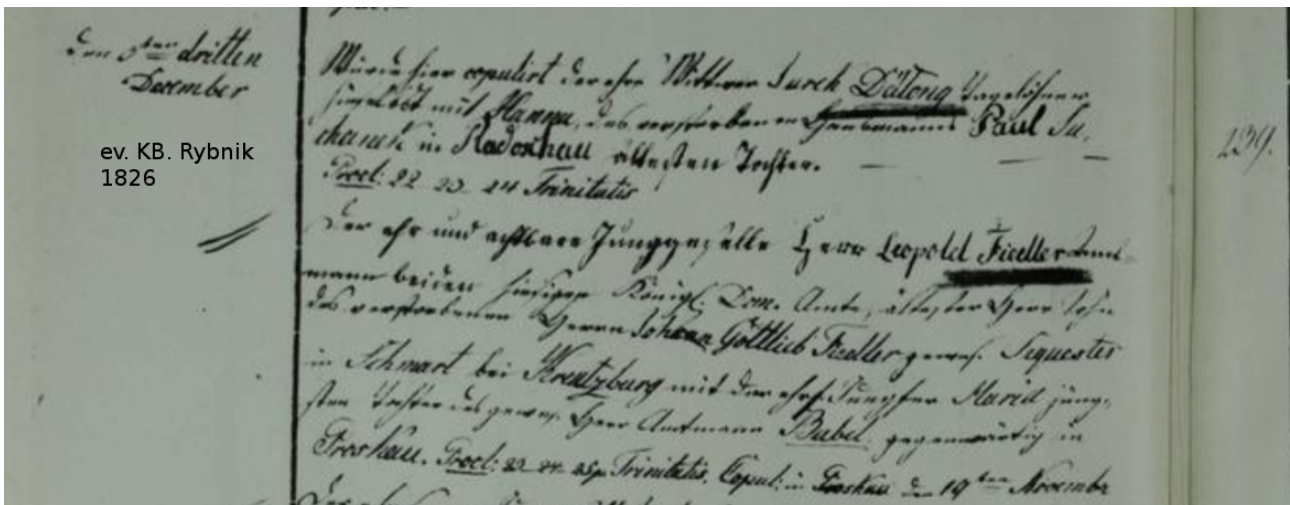 den 3ten dritten
December
ev. KB. Rybnik
1826
Wurde hier copulirt der ehrs. Wittwer Jurek Dätong Tagelöhner
hieselbst mit Hanna, des verstorbenen Häuslmanns Paul Su-
chanek in Radoschau ältesten Tochter.
Procl: 22 23 24 Trinitatis
139.
Der ehr und achtbare Junggeselle Herr Leopold Fiedler Amt-
mann beiden hiesigen Königl. Dom. Amte, ältester Herr Sohn
des verstorbenen Herrn Johann Gottlieb Fiedler gewes. Sequester
in Schmart bei Kreutzburg mit der ehrs. Jungfer Maria jüng-
sten Tochter des gewes. Herr Amtmann Babel, gegenwärtig in
Proskau. Procl: 23 24 25 p. Trinitatis. Copul: in Proskau den 19ten November